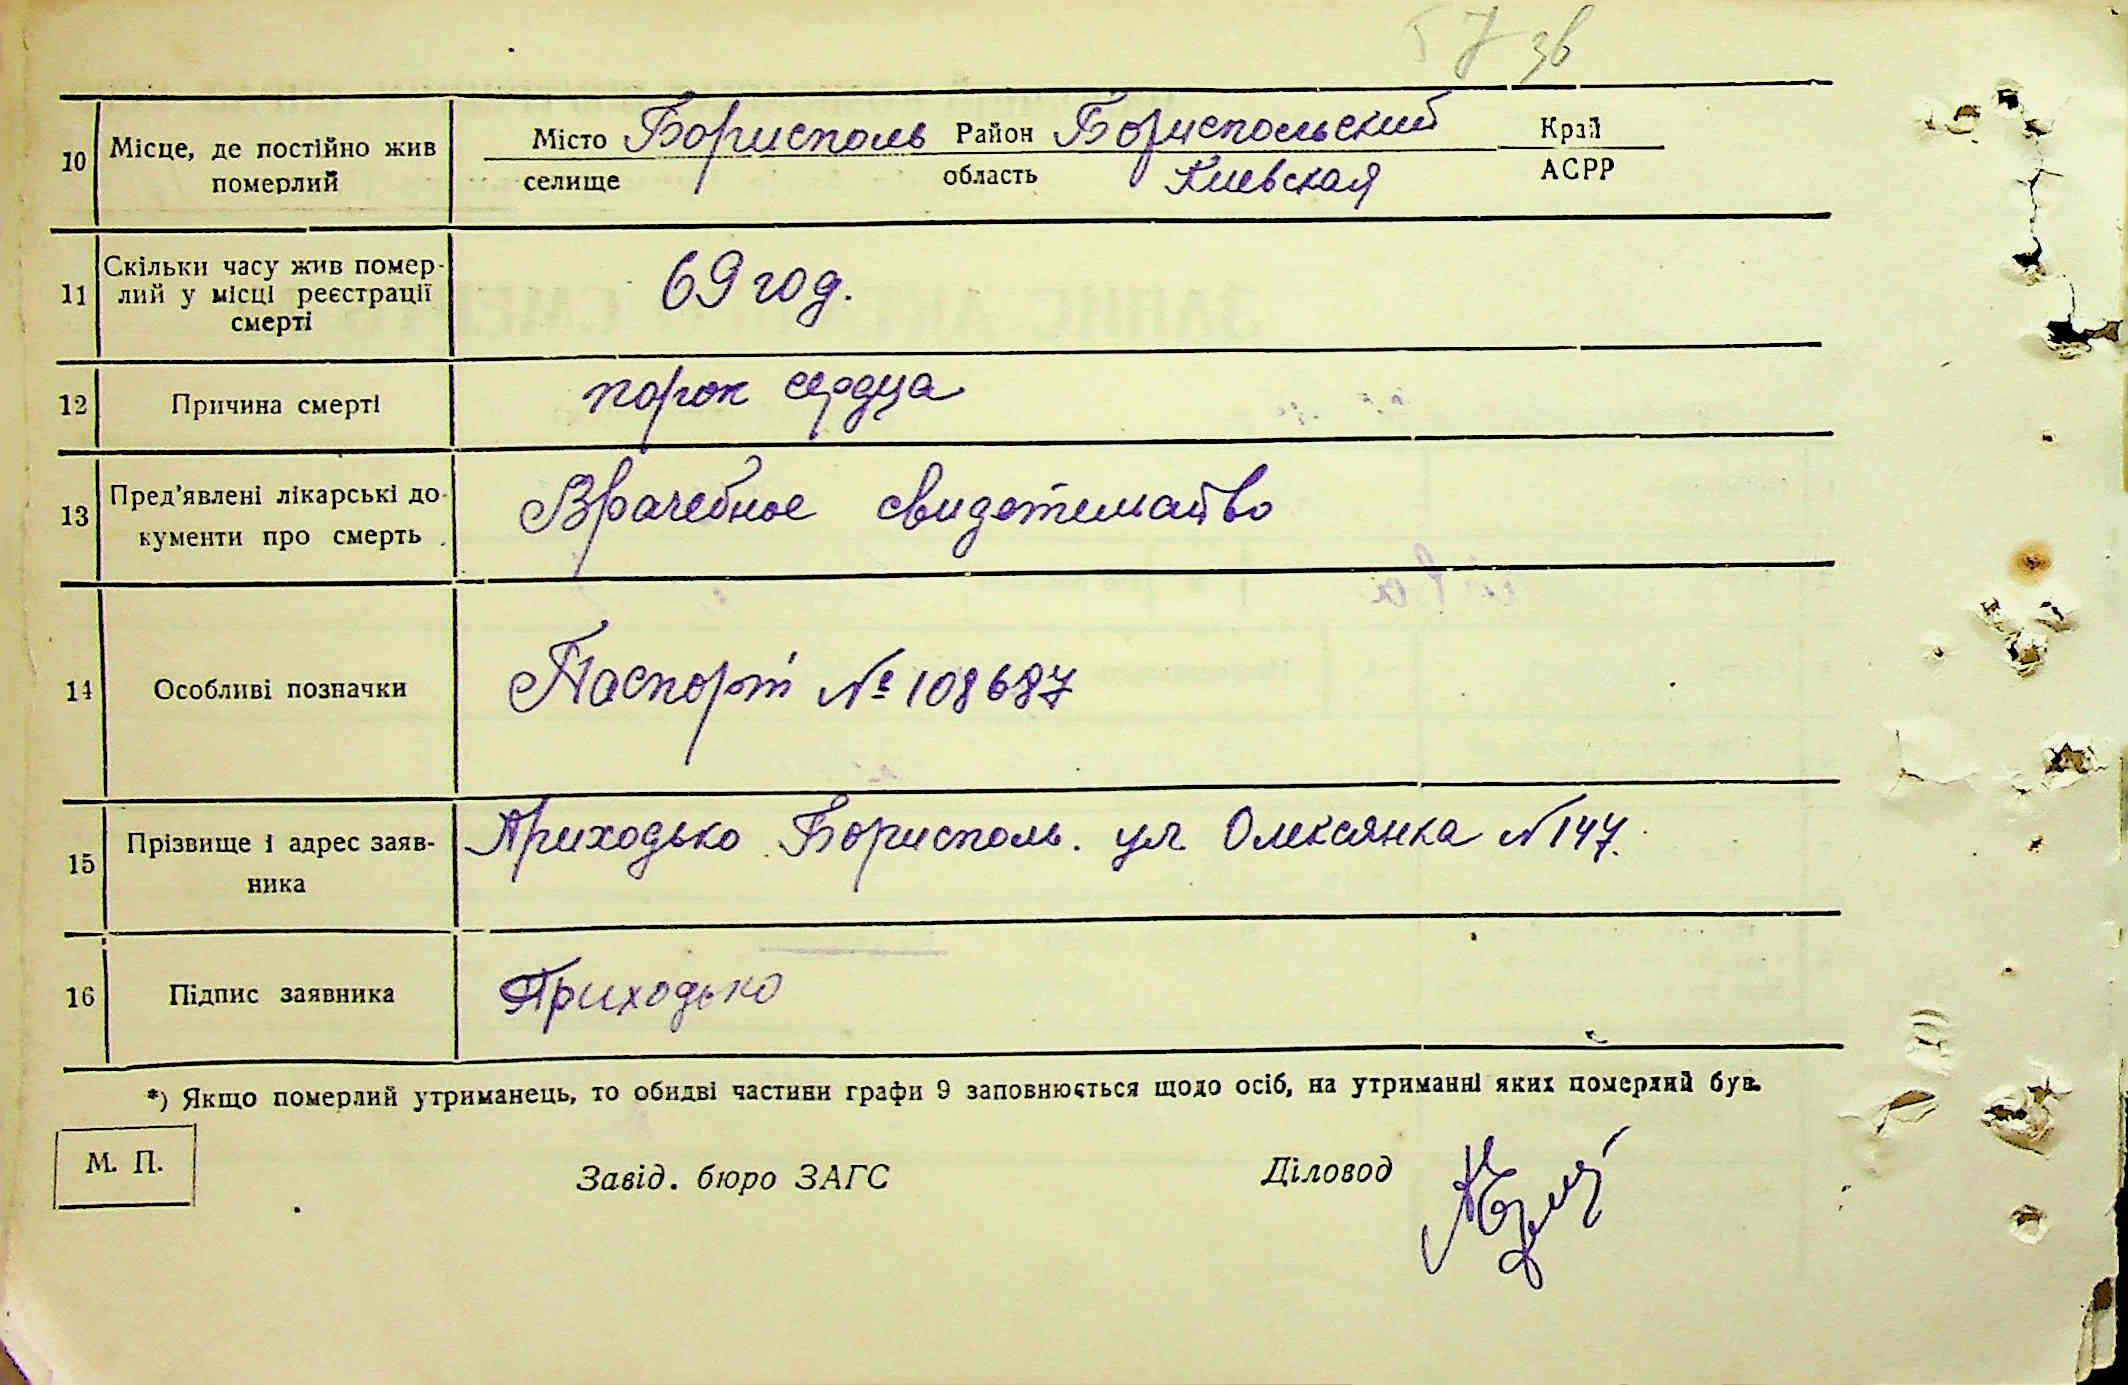 57 зв
10 Місце, де постійно жив померлий
Місто Борисполь Район Бориспольский Край
селище область Киевская АСРР
11 Скільки часу жив помер-
лий у місці реєстрації
смерті
69 год.
12 Причина смерті порок сердца
13 Пред'явлені лікарські до-
кументи про смерть
Врачебное свидетельство
14 Особливі позначки Паспорт № 108687
15 Прізвище і адрес заяв-
ника
Приходько Борисполь. ул. Олексянка №147.
16 Підпис заявника Приходько
*) Якщо померлий утриманець, то обидві частини графи 9 заповнюється щодо осіб, на утриманні яких померлий був.
М. П.
Завід. бюро ЗАГС Діловод